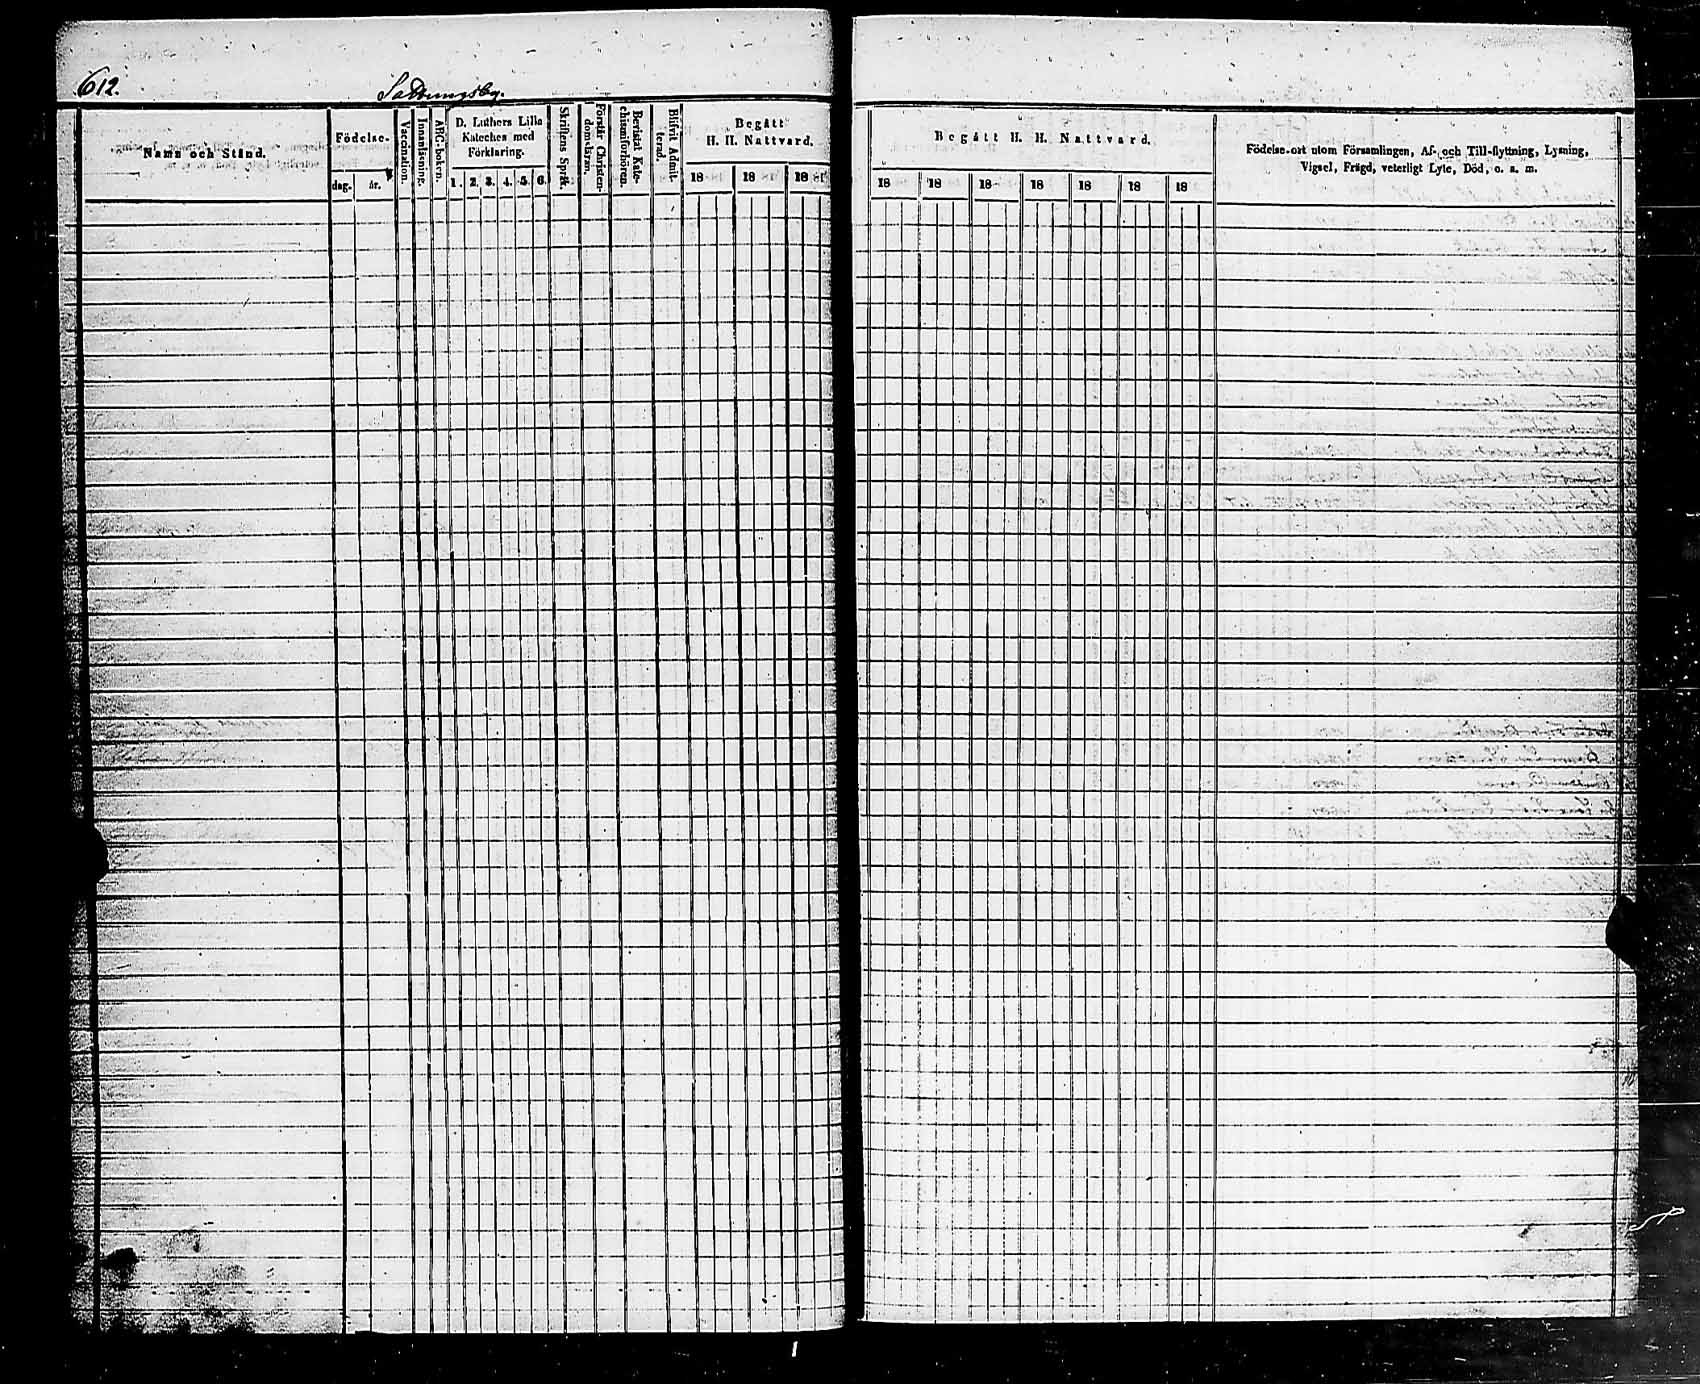 612.
Namn och Stånd.
Födelse-
dag. år.
Vaccination.
Innanläsning.
ABC-boken.
D. Luthers Lilla
Kateches med
Förklaring.
1. 2. 3. 4. 5. 6.
Skriftens Språk.
Förstår Christen-
domsläran.
Bevistat Kate-
chismiförhören.
Blifvit Admit-
terad.
Begått
H. H. Nattvard.
18 18 18
Begått H. H. Nattvard.
18 18 18 18 18 18 18
Födelse-ort utom Församlingen, Af- och Till-flyttning, Lysning,
Vigsel, Frägd, veterligt Lyte, Död, o. s. m.